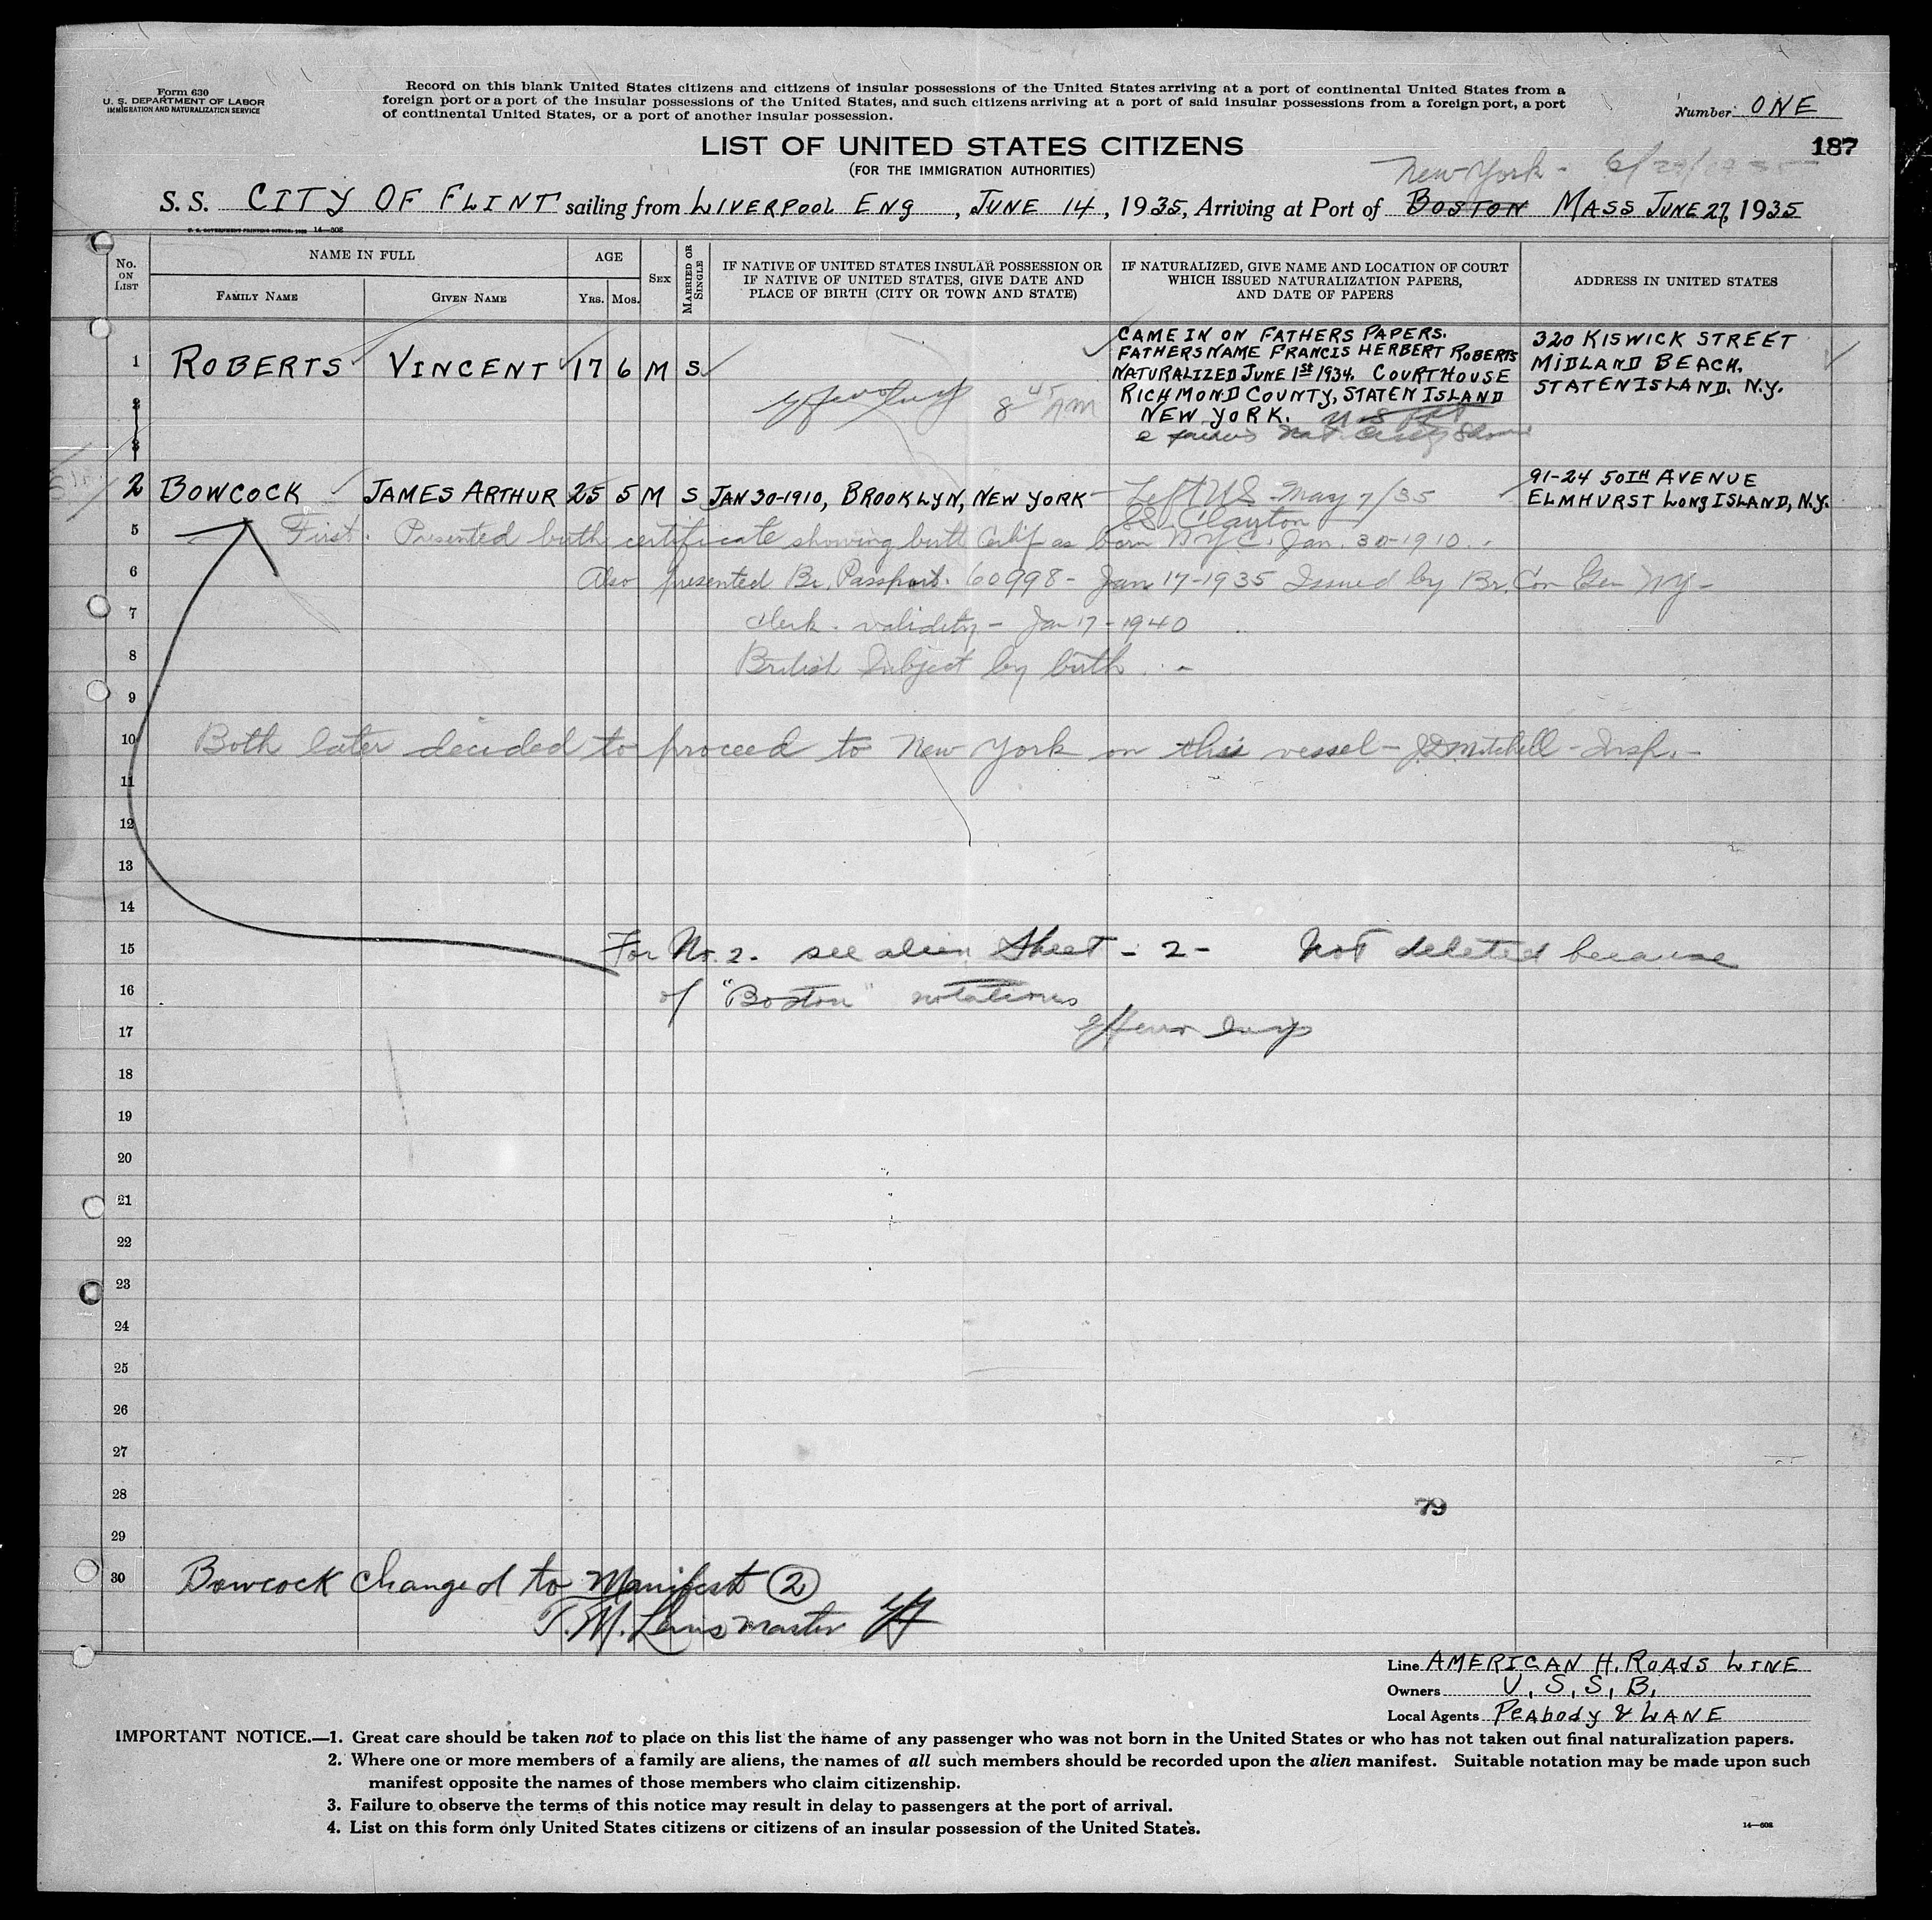 Form 630
U. S. DEPARTMENT OF LABOR
IMMIGRATION AND NATURALIZATION SERVICE
Record on this blank United States citizens and citizens of insular possessions of the United States arriving at a port of continental United States from a
foreign port or a port of the insular possessions of the United States, and such citizens arriving at a port of said insular possessions from a foreign port, a port
of continental United States, or a port of another insular possession.
Number ONE
187
LIST OF UNITED STATES CITIZENS
(FOR THE IMMIGRATION AUTHORITIES)
New York -
S. S. CITY OF FLINT sailing from LIVERPOOL ENG, JUNE 14, 1935, Arriving at Port of BOSTON MASS JUNE 27, 1935
14—608
No. ON LIST
NAME IN FULL
FAMILY NAME
GIVEN NAME
AGE
YRS.
MOS.
SEX
MARRIED OR SINGLE
IF NATIVE OF UNITED STATES INSULAR POSSESSION OR
IF NATIVE OF UNITED STATES, GIVE DATE AND
PLACE OF BIRTH (CITY OR TOWN AND STATE)
IF NATURALIZED, GIVE NAME AND LOCATION OF COURT
WHICH ISSUED NATURALIZATION PAPERS,
AND DATE OF PAPERS
ADDRESS IN UNITED STATES
1 ROBERTS VINCENT 17 6 M S
CAME IN ON FATHERS PAPERS.
FATHERS NAME FRANCIS HERBERT ROBERTS
NATURALIZED JUNE 1ST 1934. COURTHOUSE
RICHMOND COUNTY, STATEN ISLAND
NEW YORK.
320 KISWICK STREET
MIDLAND BEACH.
STATEN ISLAND. N.Y.
8 45 AM
2
3
2 BOWCOCK JAMES ARTHUR 25 5 M S JAN 30-1910, BROOKLYN, NEW YORK
Left US May 7/35
SS. Clayton
91-24 50TH AVENUE
ELMHURST LONG ISLAND, N.Y.
5 First. Presented birth certificate showing birth Certif as born N.Y.C. Jan. 30-1910.
6 Also presented Br. Passport. 60998 - Jan 17-1935 Issued by Br. Con Gen NY -
7 clerk. validity - Jan 17-1940
8 British Subject by birth.
9
10 Both later decided to proceed to New York on this vessel - J.D. Mitchell - Insp. -
11
12
13
14
15 For No. 2. see alien Sheet - 2 - Not deleted because
16 of "Boston" notations
17
18
19
20
21
22
23
24
25
26
27
28
79
29
30 Bowcock changed to Manifest 2
master
Line AMERICAN H. ROADS LINE
Owners U. S. S. B.
Local Agents PEABODY & LANE
IMPORTANT NOTICE.—1. Great care should be taken not to place on this list the name of any passenger who was not born in the United States or who has not taken out final naturalization papers.
2. Where one or more members of a family are aliens, the names of all such members should be recorded upon the alien manifest. Suitable notation may be made upon such
manifest opposite the names of those members who claim citizenship.
3. Failure to observe the terms of this notice may result in delay to passengers at the port of arrival.
4. List on this form only United States citizens or citizens of an insular possession of the United States.
14—608